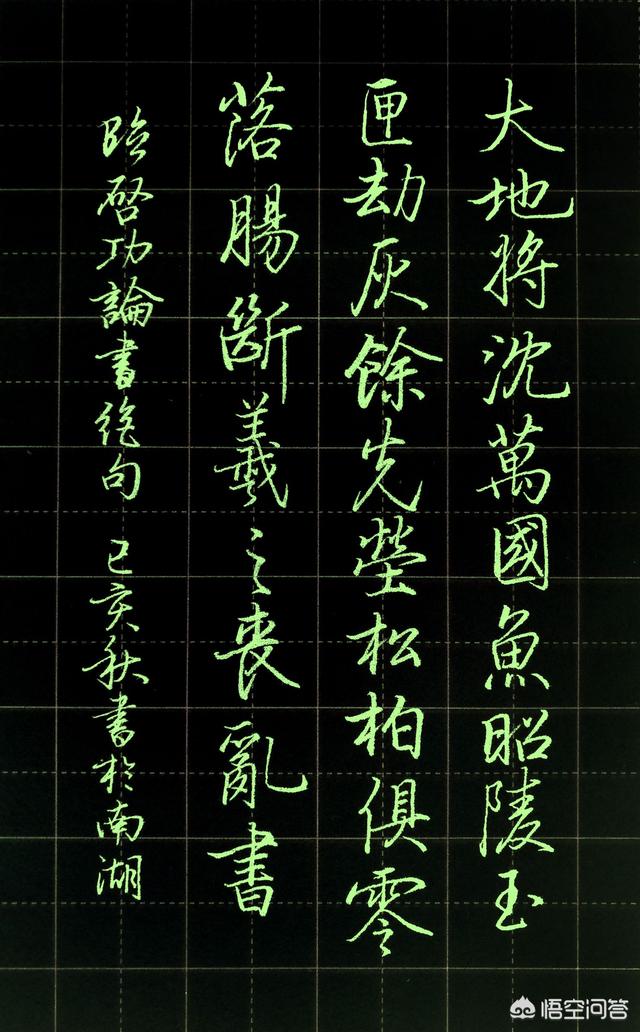 大地將沈萬國魚昭陵玉
匣劫灰餘先塋松柏俱零
落腸斷羲之喪亂書
臨啓功論書絶句 己亥秋書於南湖
悟空问答